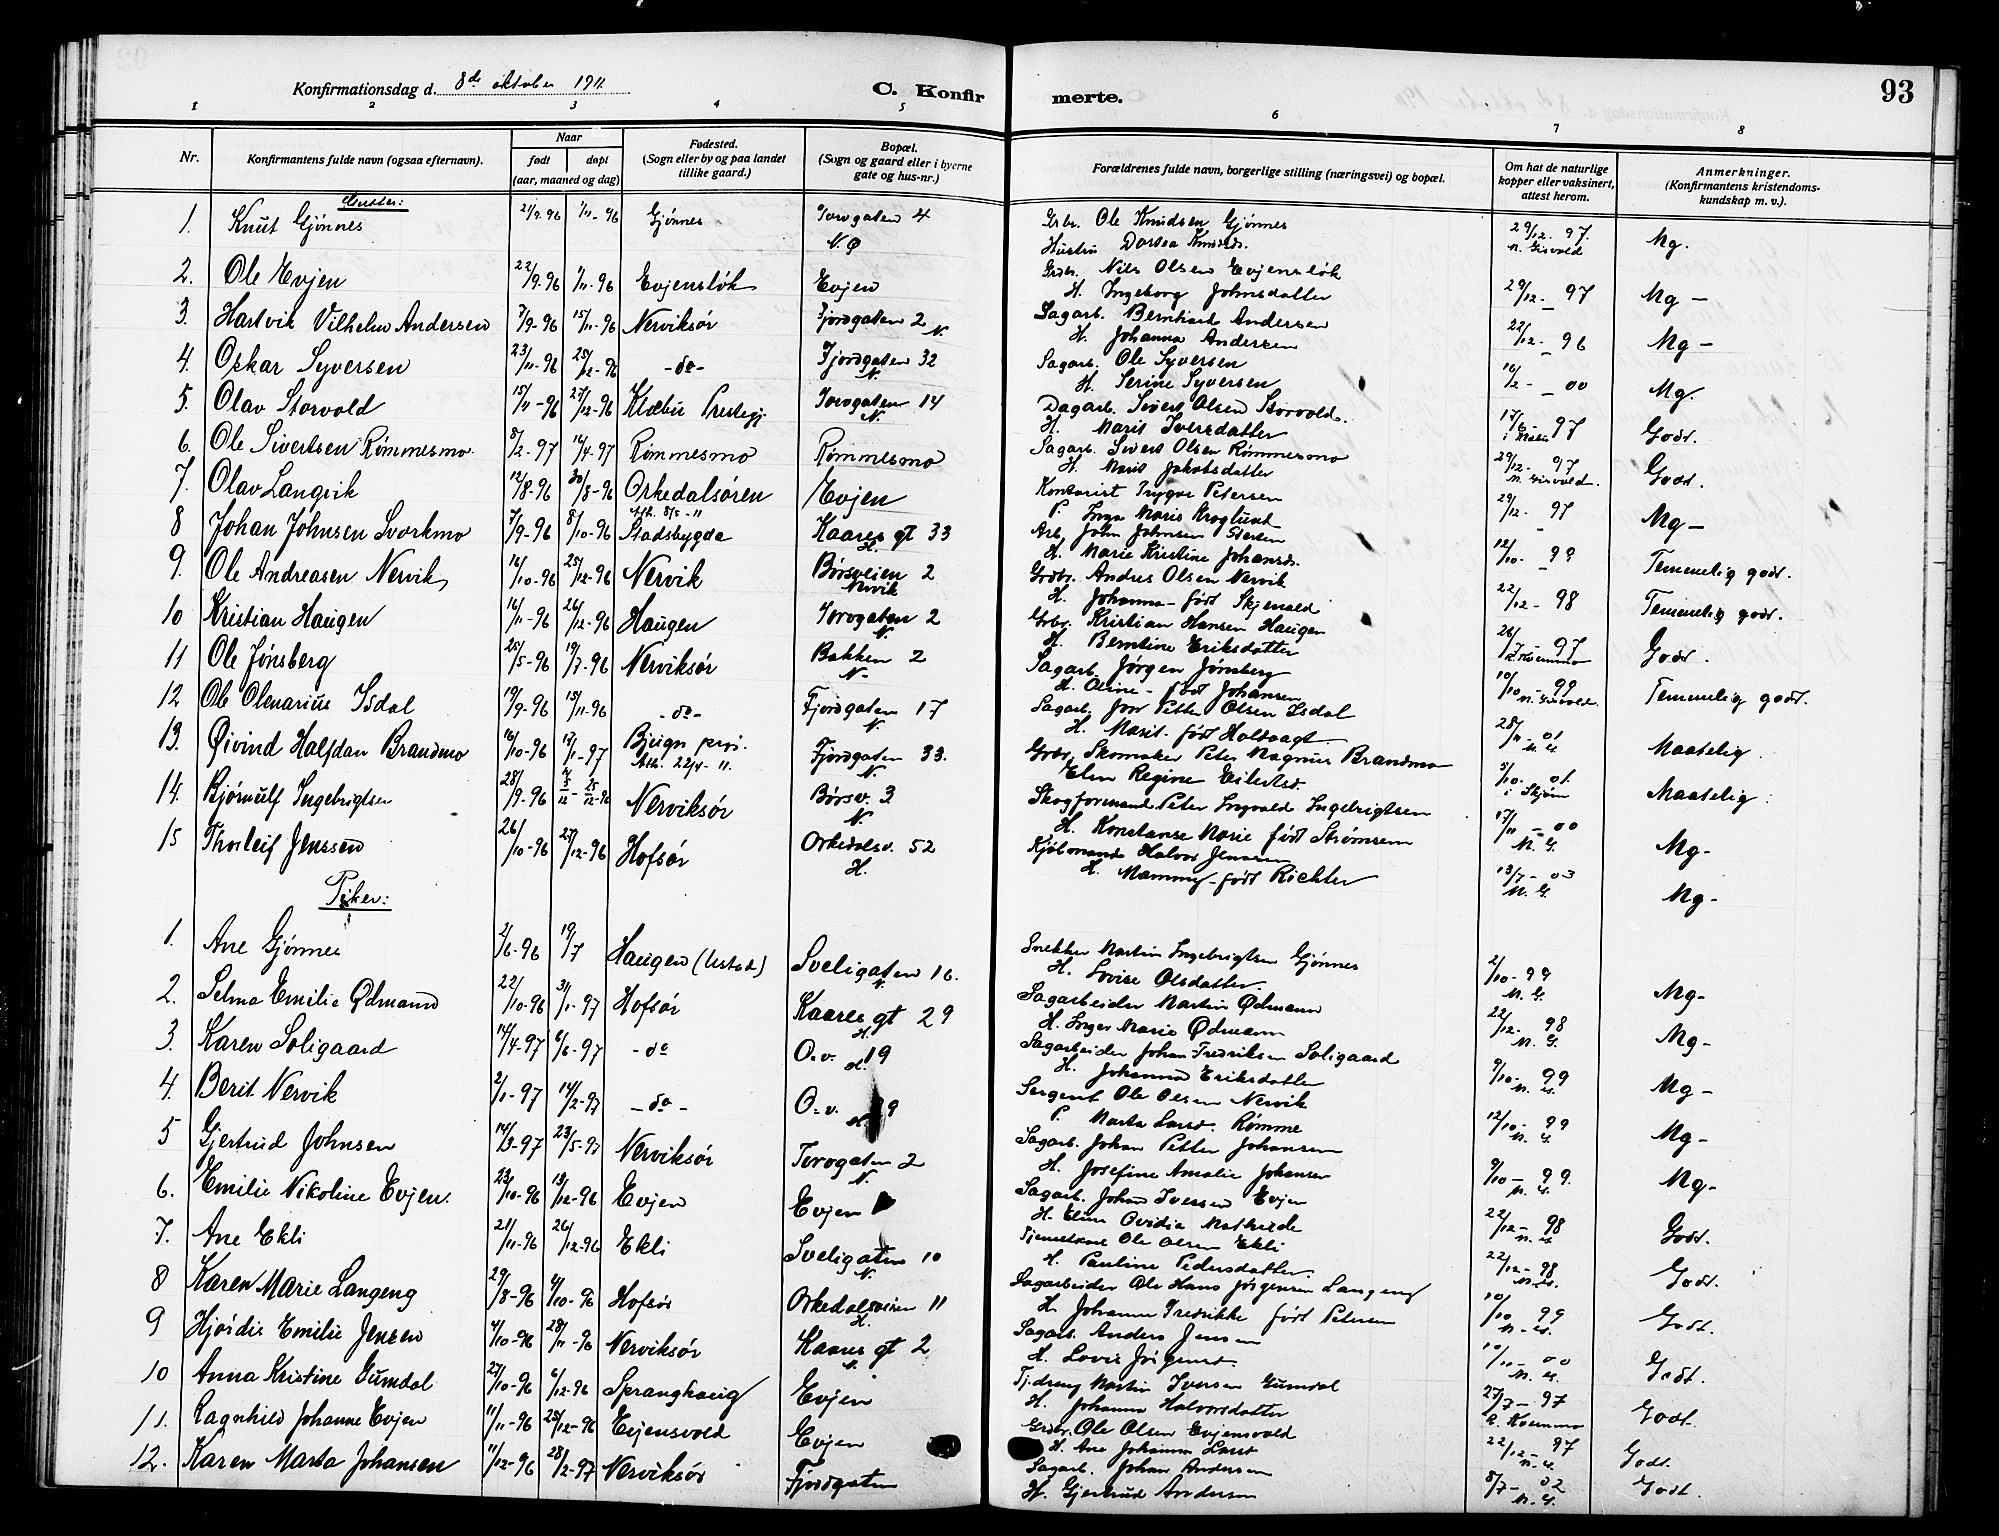 93
Konfirmationsdag d. 8de oktober 1911.
C. Konfirmerte.
1 2 3 4 5 6 7 8
Nr. Konfirmantens fulde navn (ogsaa efternavn). Naar født døpt (aar, maaned og dag) Fødested. (Sogn eller by og paa landet tillike gaard.) Bopæl. (Sogn og gaard eller i byerne gate og hus-nr.) Forældrenes fulde navn, borgerlige stilling (næringsvei) og bopæl. Om hat de naturlige kopper eller vaksinert, attest herom. Anmerkninger. (Konfirmantens kristendomskundskap m. v.).
Gutter:
1. Knut Gjønnes 21/9 96 1/11-96 Gjønnes Torvgaten 4 N.Ø Grbr. Ole Knudsen Gjønnes
Hustru Dortea Knudsd. 29/12-97. N. Gisvold Mg.
2. Ole Evjen 22/9-96 1/11-96 Evjensløk Evjen Grdbr. Nils Olsen Evjensløk
H. Ingeborg Johnsdatter 29/12-97 Mg-
3. Hartvik Vilhelm Andersen 7/9-96 15/11-96 Nerviksør Fjordgaten 2 N. Sagarb. Bernhard Andersen
H. Johanna Andersen 22/12-96 Mg-
4. Oskar Syversen 23/11-96 25/12-96 -do- Fjordgaten 32 N. Sagarb. Ole Syversen
H. Serine Syversen 16/2-00 Mg.
5. Olav Storvold 15/11-96 27/12-96 Klæbu Prestegj Torvgaten 14 N. Dagarb. Sivert Olsen Storvold.
H. Marit Iversdatter 17/6 97 Godt.
6. Ole Sivertsen Rømmesmo 8/2-97 16/4-97 Rømmesmo Rømmesmo Sagarb. Sivert Olsen Rømmesmo
H. Marit Jakobsdatter 29/12-97 N. Gisvold. Godt.
7. Olav Langvik 12/8-96 30/8-96 Orkedalsøren Evjen Kontorist Trygve Petersen
P. Inga Maris Kroglund 29/12-97 Mg-
8 Johan Johnsen Svorkmo 7/9-96 8/10-96 Stadsbygda Kaares gt 33 H. Arb. John Johnsen
H. Marie Kristine Johansd. 12/10-99 Temmelig godt.
9. Ole Andreasen Nervik 16/10-96 25/12-96 Nervik Børsveien 2 Nervik Grdbr. Andres Olsen Nervik
H. Johanna- født Skjenald 22/12-98 Temmelig godt.
10 Kristian Haugen 16/11-96 26/12-96 Haugen Torvgaten 2 N. Grbr. Kristian Hansen Haugen
H. Berntine Eriksdatter 26/7 97 Godt.
11 Ole Jønsberg 25/5-96 19/7-96 Nerviksør Bakken 2 N. Sagarb. Jørgen Jønsberg
H. Oline- født Johansen 10/10-99 N. Gisvold. Temmelig godt.
12 Ole Olenarius Isdal 19/9-96 15/11-96 -do- Fjordgaten 17 N. Sagarb. Jon Petter Olsen Isdal
H. Marit født Holtvagt 28/11-01 N.G. Maatelig
13. Øivind Halfdan Brandmo 16/10-96 17/1-97 Bjugn prgj. Att. 22/4-11. Fjordgaten 33. N. Grbr. Skomaker Peter Magnus Brandmo
Elen Regine Eilertsd. 5/10-01. i Skjørn Maatelig.
14. Bjørnulf Ingebrigtsen 28/9-96 25/12-96 Nerviksør Børsv. 3. N. Skogformand Peter Ingvald Ingebrigtsen
H. Konstanse Marie født Strømsem 17/11-00 N.G. Mg-
15 Thorleif Jenssen 26/10-96 27/12-96 Hofsør Orkedalsv. 52 H. Kjøbmand Halvor Jenssen
H. Mammy- født Richter 13/7-03 N.G. Mg-
Piker:
1. Ane Gjønnes 2/6-96 19/7 Haugen (Ustad) Sveligaten 16. N. Snekker Martin Ingebrigtsen Gjønnes
H. Lovise Olsdatter. 2/10-99 N.G. Mg-
2. Selma Emilie Ødmand 22/10-96 31/1-97 Hofsør Kaares gt 29 H. Sagarbeider Martin Ødmann
H. Inger Marie Ødmann 22/12-98 N.G. Mg-
3. Karen Soligaard 14/4-97 6/6-97 -do O.v. 19 H. Sagarbeider Johan Fredriksen Soligaard
H. Johanna Eriksdatter 9/10-99 N.G. Mg-
4. Berit Nervik 2/1-97 14/2-97 -do- O.v. 9 H. Sergent Ole Olsen Nervik
P. Marta Larsd. Rømme 12/10-99 N.G. Mg-
5 Gjertrud Johnsen 14/3-97 23/5-97 Nerviksør Torvgaten 2 N. Sagarb. Johan Petter Johansen
H. Josefine Amalie Johansen 9/10-99. N.G. Mg-
6. Emilie Nikoline Evjen. 23/10-96 13/12-96 Evjen Evjen Sagarb. Johan Iversen Evjen
H. Elen Ovidia Mathilde 22/12-98 N.G. Godt.
7. Ane Ekli 21/11-96 26/12-96 Ekli Sveligaten 10 N. Tjenestkar Ole Olsen Ekli
H. Pauline Pedersdatter. 22/12-98 N.G. Godt.
8 Karen Marie Langeng 29/8-96 4/10-96 Hofsør Orkedalsveien 11 H. Sagarbeider Ole Hans Jørgensen Langeng
H. Johanne Fredrikke født Petersen 10/10 99 N.G. Godt.
9 Hjørdis Emilie Jensen 4/10-96 28/11-96 Nerviksør Kaares gt 2 N. Sagarb. Anders Jensen
H. Lovise Jørgensd. 10/11-00 N.G. Godt.
10 Anna Kristine Gumdal 27/10-96 6/12-96 Spranghaug Evjen Tj.dreng Martin Iversen Gumdal
H. Johanna Halvorsdatter 27/7-97 R. Kvernmo Godt.
11. Ragnhild Johanne Evjen 11/11-96 25/12-96 Evjensvold Evjen Grdbr. Ole Olsen Evjensvold
H. Ane Johanna Larsd. 22/12-97 N.G. Godt.
12. Karen Marta Johansen 11/12-96 28/2-97 Nerviksør Fjordgaten Sagarb. Johan Andersen
H. Gjertrud Andersen 8/7-02 N.G. Godt.